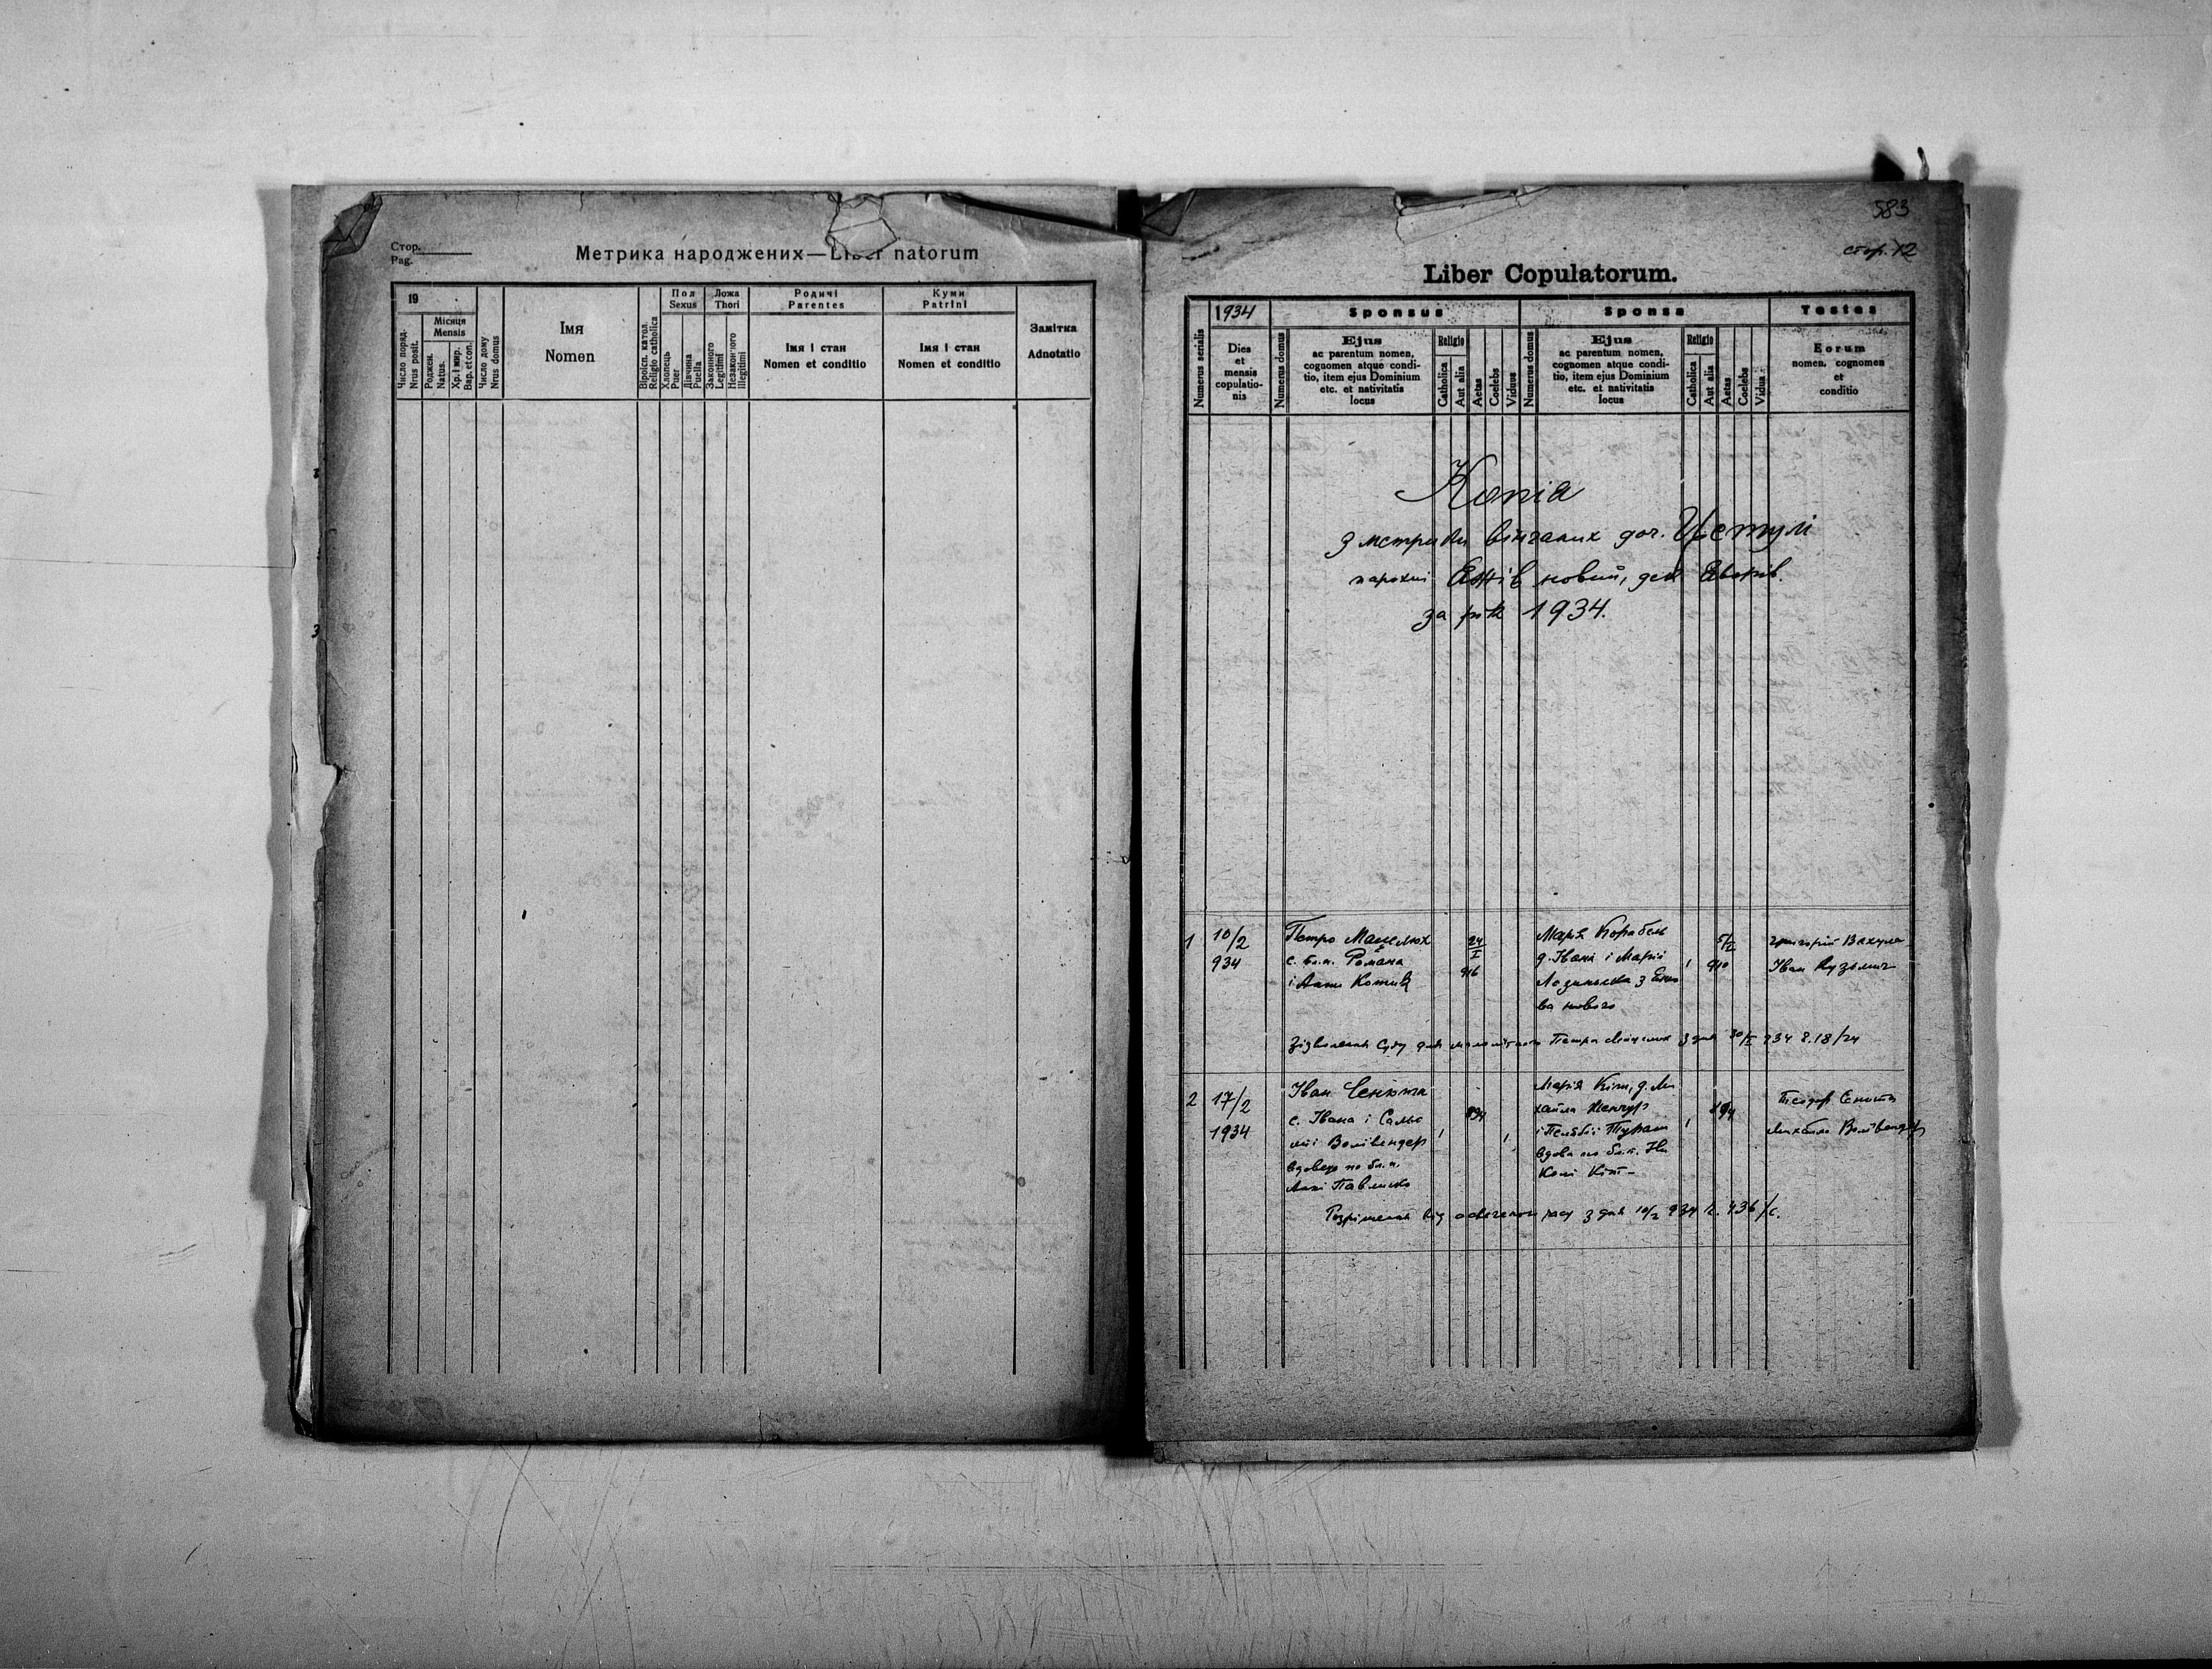 Стор.
Pag.
Метрика народжених—Liber natorum
19
Число поряд.
Nrus posit.
Місяця
Mensis
Роджен.
Natus.
Хр. і мир.
Bap. et con.
Число дому
Nrus domus
Імя
Nomen
Віроісп. катол.
Religio catholica
Пол
Sexus
Хлопець
Puer
Дівчина
Puella
Ложа
Thori
Законного
Legitimi
Незаконного
Illegitimi
Родичі
Parentes
Імя і стан
Nomen et conditio
Куми
Patrini
Імя і стан
Nomen et conditio
Замітка
Adnotatio
583
стор. 12
Liber Copulatorum.
1934
Sponsus
Sponsa
Testes
Numerus serialis
Dies
et
mensis
copulatio-
nis
Numerus domus
Ejus
ac parentum nomen,
cognomen atque condi-
tio, item ejus Dominium
etc. et nativitatis
locus
Religio
Catholica
Aut alia
Aetas
Coelebs
Viduus
Numerus domus
Ejus
ac parentum nomen,
cognomen atque condi-
tio, item ejus Dominium
etc. et nativitatis
locus
Religio
Catholica
Aut alia
Aetas
Coelebs
Vidua
Eorum
nomen, cognomen
et
conditio
Копія
з метрики вінчаних доч. Цетулі
парохії новий, дек
за рік 1934.
1
10/2
934
Петро
с. бл.п. Романа
і Анни Котик
24/I
916
Марія Корабель
д. Івана і Марії
з
ва нового
5/I
910
Григорій Вахула
Іван Кузьмич
Суду для Петра з дня 30/I 934
2
17/2
1934
Іван Сенюта
с. Івана і Сальо
мії Воливендер
вдовець по бл.п.
Анні Павлиско
894
Марія Кіт, д. Ми
хайла
і
вдова по бл.п. Ни
коли Кіт
Теодор Сенюта
Михайло
від з дня 10/2 934